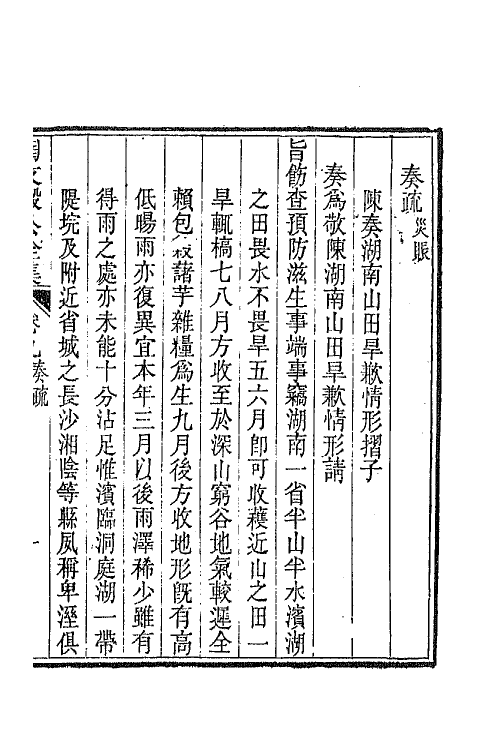 奏疏 災賑
陳奏湖南山田旱歉情形摺子
奏爲敬陳湖南山田旱歉情形請
旨飭查預防滋生事端事竊湖南一省半山半水濱湖
之田畏水不畏旱五六月卽可收穫近山之田一
旱輒槁七八月方收至於深山窮谷地氣較遲全
賴包穀藷芋雜糧爲生九月後方收地形旣有高
低暘雨亦復異宜本年三月以後雨澤稀少雖有
得雨之處亦未能十分沾足惟濱臨洞庭湖一帶
隄垸及附近省城之長沙湘陰等縣夙稱卑溼俱
陶文毅公全集 卷九 奏疏 一